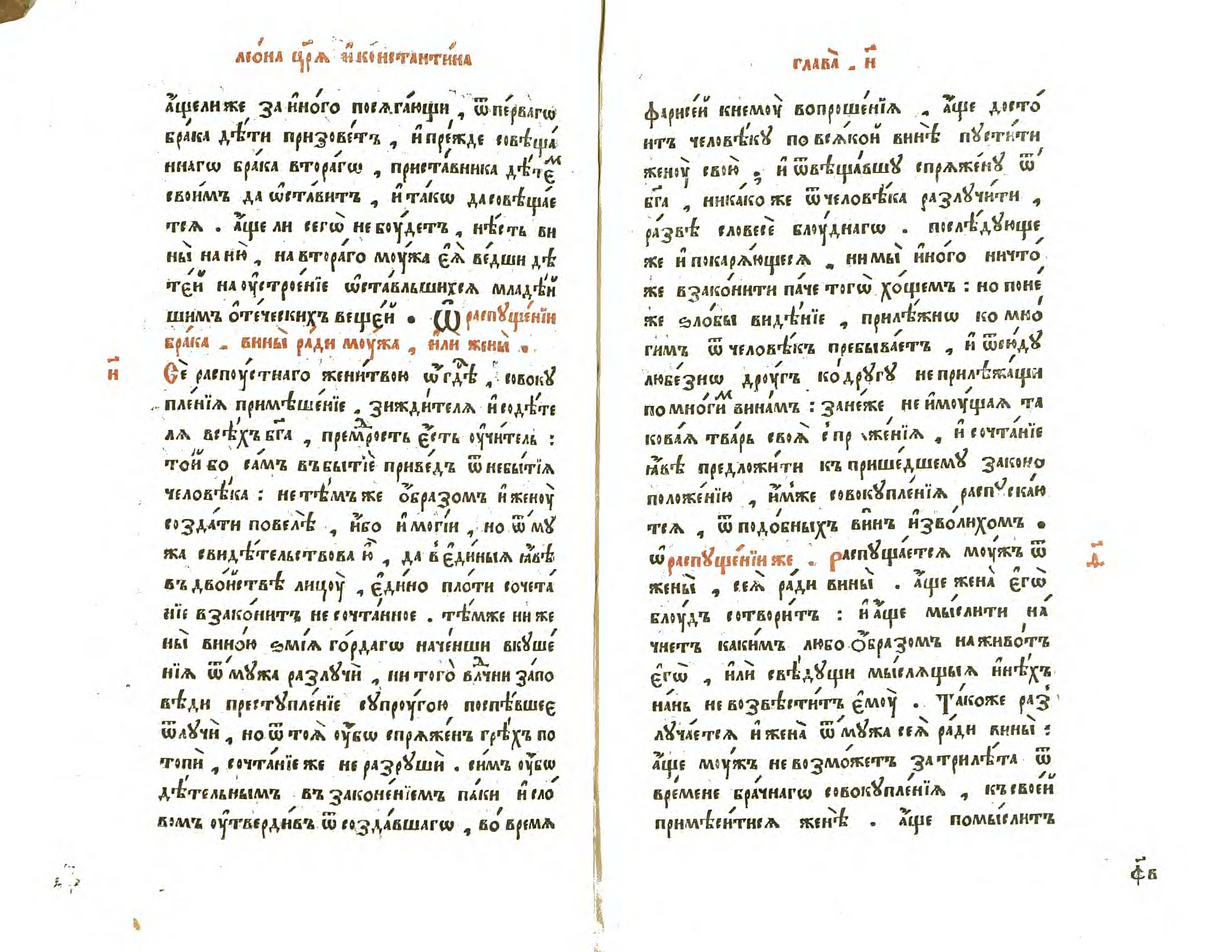 леѡ́на цр҃ѧ и҆ константи́на
а҆́щели же за и҆но́го посѧга́ющи , ѿ пе́рвагѡ
бра́ка дѣ́ти призове́тъ , и҆ пре́жде совѣща́
ннагѡ бра́ка втора́гѡ , приста́вника дѣ́те́м
свои́мъ да ѡ҆ста́витъ , и҆ та́кѡ да совѣща́е
тсѧ . а҆́ще ли сегѡ̀ не бꙋ́детъ , нѣ́сть ви
ны̀ на ню̀ , на втора́го мꙋ́жа є҆ѧ̀ ве́дши дѣ
те́й на ᲂу҆строе́нїе ѡ҆ста́вльшихсѧ младѣ́й
шимъ ѻ҆те́ческихъ веще́й . Ѿ распꙋще́нїи
бра́ка . вины̀ ра́ди мꙋ́жа , и҆лѝ жены̀ .
и҃
Сѐ распꙋ́стнаго жени́твою ѡ҆ гдⷭ҇ѣ , совокꙋ
пле́нїѧ примѣше́нїе , зижди́телѧ и҆ содѣ́те
лѧ всѣ́хъ бг҃а , премⷣрость є҆́сть ᲂу҆чи́тель :
то́й бо са́мъ въ бытїѐ приве́дъ ѿ небытїѧ̀
человѣ́ка : не тѣ́мъ же ѻ҆́бразомъ и҆ женꙋ̀
созда́ти повелѣ̀ , и҆́бо и҆ могі́и , но ѿ мꙋ́
жа свидѣ́тельствова ю҆̀ , да в є҆ди́ныѧ ꙗ҆́вѣ
въ дво́йствѣ лицꙋ̀ , є҆ди́но пло́ти сочета́
нїе взако́нитъ не сочта́нное . тѣ́мже ни же
ны̀ вино́ю ѕмі́ѧ го́рдагѡ наче́нши вкꙋше́
нїѧ ѿ мꙋ́жа разлꙋчѝ , ни того̀ влⷣчни за́по
вѣди престꙋпле́нїе сꙋпрꙋ́гою поспѣ́вшее
ѿлꙋчѝ , но ѿ тоѧ̀ ᲂу҆́бѡ спрѧже́нъ грѣ́хъ по
топѝ , сочта́нїе же не разрꙋшѝ . си́мъ ᲂу҆́бѡ
дѣ́тельнымъ въ законе́нїемъ па́ки и҆ сло́
вомъ ᲂу҆тверди́въ ѿ созда́вшагѡ , во́ время
глава̀ . и҃
фарисе́й к немꙋ̀ вопроше́нїѧ , а҆́ще досто́
итъ человѣ́кꙋ по всѧ́кой винѣ̀ пꙋсти́ти
женꙋ̀ свою̀ ; и҆ ѿвѣща́вшꙋ спрѧже́нꙋ ѿ
бг҃а , ника́ко же ѿ человѣ́ка разлꙋчи́ти ,
ра́звѣ словесѐ блꙋ́днагѡ . послѣ́дꙋюще
же и҆ покарѧ́ющесѧ , ни мы̀ и҆но́го ничто́
же взако́нити па́че тогѡ̀ хо́щемъ : но поне́
же ѕло́бы ви́дѣнїе , прилѣ́жнѡ ко мно́
гимъ ѿ человѣ́къ пребыва́етъ , и҆ ѿею́дꙋ
любе́знѡ дрꙋ́гъ ко́ дрꙋгꙋ не прилѣжа́щи
по мно́гим вина́мъ : зане́же не и҆мꙋ́щаѧ та
кова́ѧ тва́рь своѧ̀ женїѧ , и҆ сочта́нїе
ꙗ҆́вѣ предложи́ти къ прише́дшемꙋ зако́но
положе́нїю , и҆́мже совокꙋпле́нїѧ распꙋска́ю
тсѧ , ѿ подо́бныхъ ви́нъ и҆зво́лихомъ .
ѡ҆ распꙋще́нїи же . Распꙋща́етсѧ мꙋ́жъ ѿ
д҃
жены̀ , сеѧ̀ ра́ди вины̀ . а҆́ще жена̀ є҆гѡ̀
блꙋ́дъ сотвори́тъ : и҆ а҆́ще мы́слити на́
чнетъ каки́мъ любо ѻ҆́бразомъ на живо́тъ
є҆гѡ̀ , и҆лѝ свѣ́дꙋщи мы́слѧщыѧ и҆нѣ́хъ
на́нь не возвѣсти́тъ є҆мꙋ̀ . Та́коже раз
лꙋча́етсѧ и҆ жена̀ ѿ мꙋ́жа сеѧ̀ ра́ди вины̀ :
а҆́ще мꙋ́жъ не возмо́жетъ за три лѣ́та ѿ
вре́мене бра́чнагѡ совокꙋпле́нїѧ , къ свое́й
примѣси́тисѧ женѣ̀ . а҆́ще помы́слитъ
ф҃в